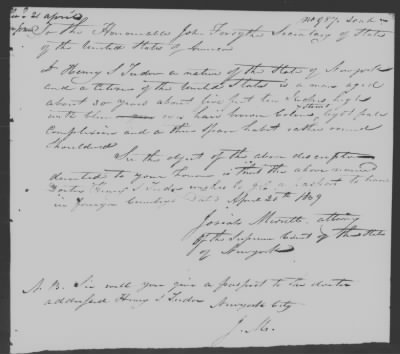 21 april
To the Honourable John Forsythe Secretary of State
of the United States of America
Henry S Tudor a native of the State of Newyork
and a citizen of the United States is a man aged
about 30 years about five feet ten Inches high
with blue eyes hair brown Colour, light pale
Complexion and a thin Spare habit rather round
Shouldered
Sir the object of the above description
directed to your honour is that the above named
Doctor Henry S Tudor wishes to get a pasport to travel
in foreign Countries Dated April 20th 1839
Josiah Merritt attorney
of the Supreme Court of the State
of Newyork
N. B. Sir will you give a pasport to the doctor
addressed Henry S Tudor
Newyork City
J. M.